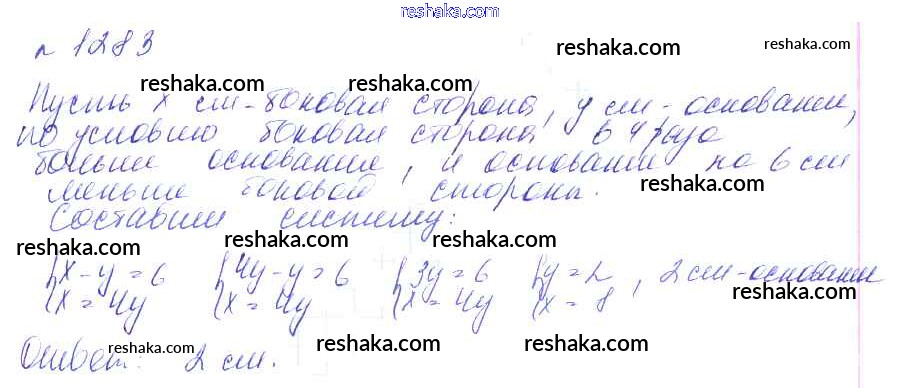 reshaka.com
№ 1283
reshaka.com reshaka.com
reshaka.com reshaka.com
Пусть x см - боковая сторона, y см - основание,
по условию боковая сторона в 4 раза
больше основание, и основание на 6 см
меньше боковой стороны.
reshaka.com
Составим систему:
reshaka.com reshaka.com reshaka.com
{x - y = 6 {4y - y = 6 {3y = 6 {y = 2, 2 см - основание
{x = 4y {x = 4y {x = 4y {x = 8
reshaka.com
Ответ: 2 см.
reshaka.com reshaka.com reshaka.com
reshaka.com